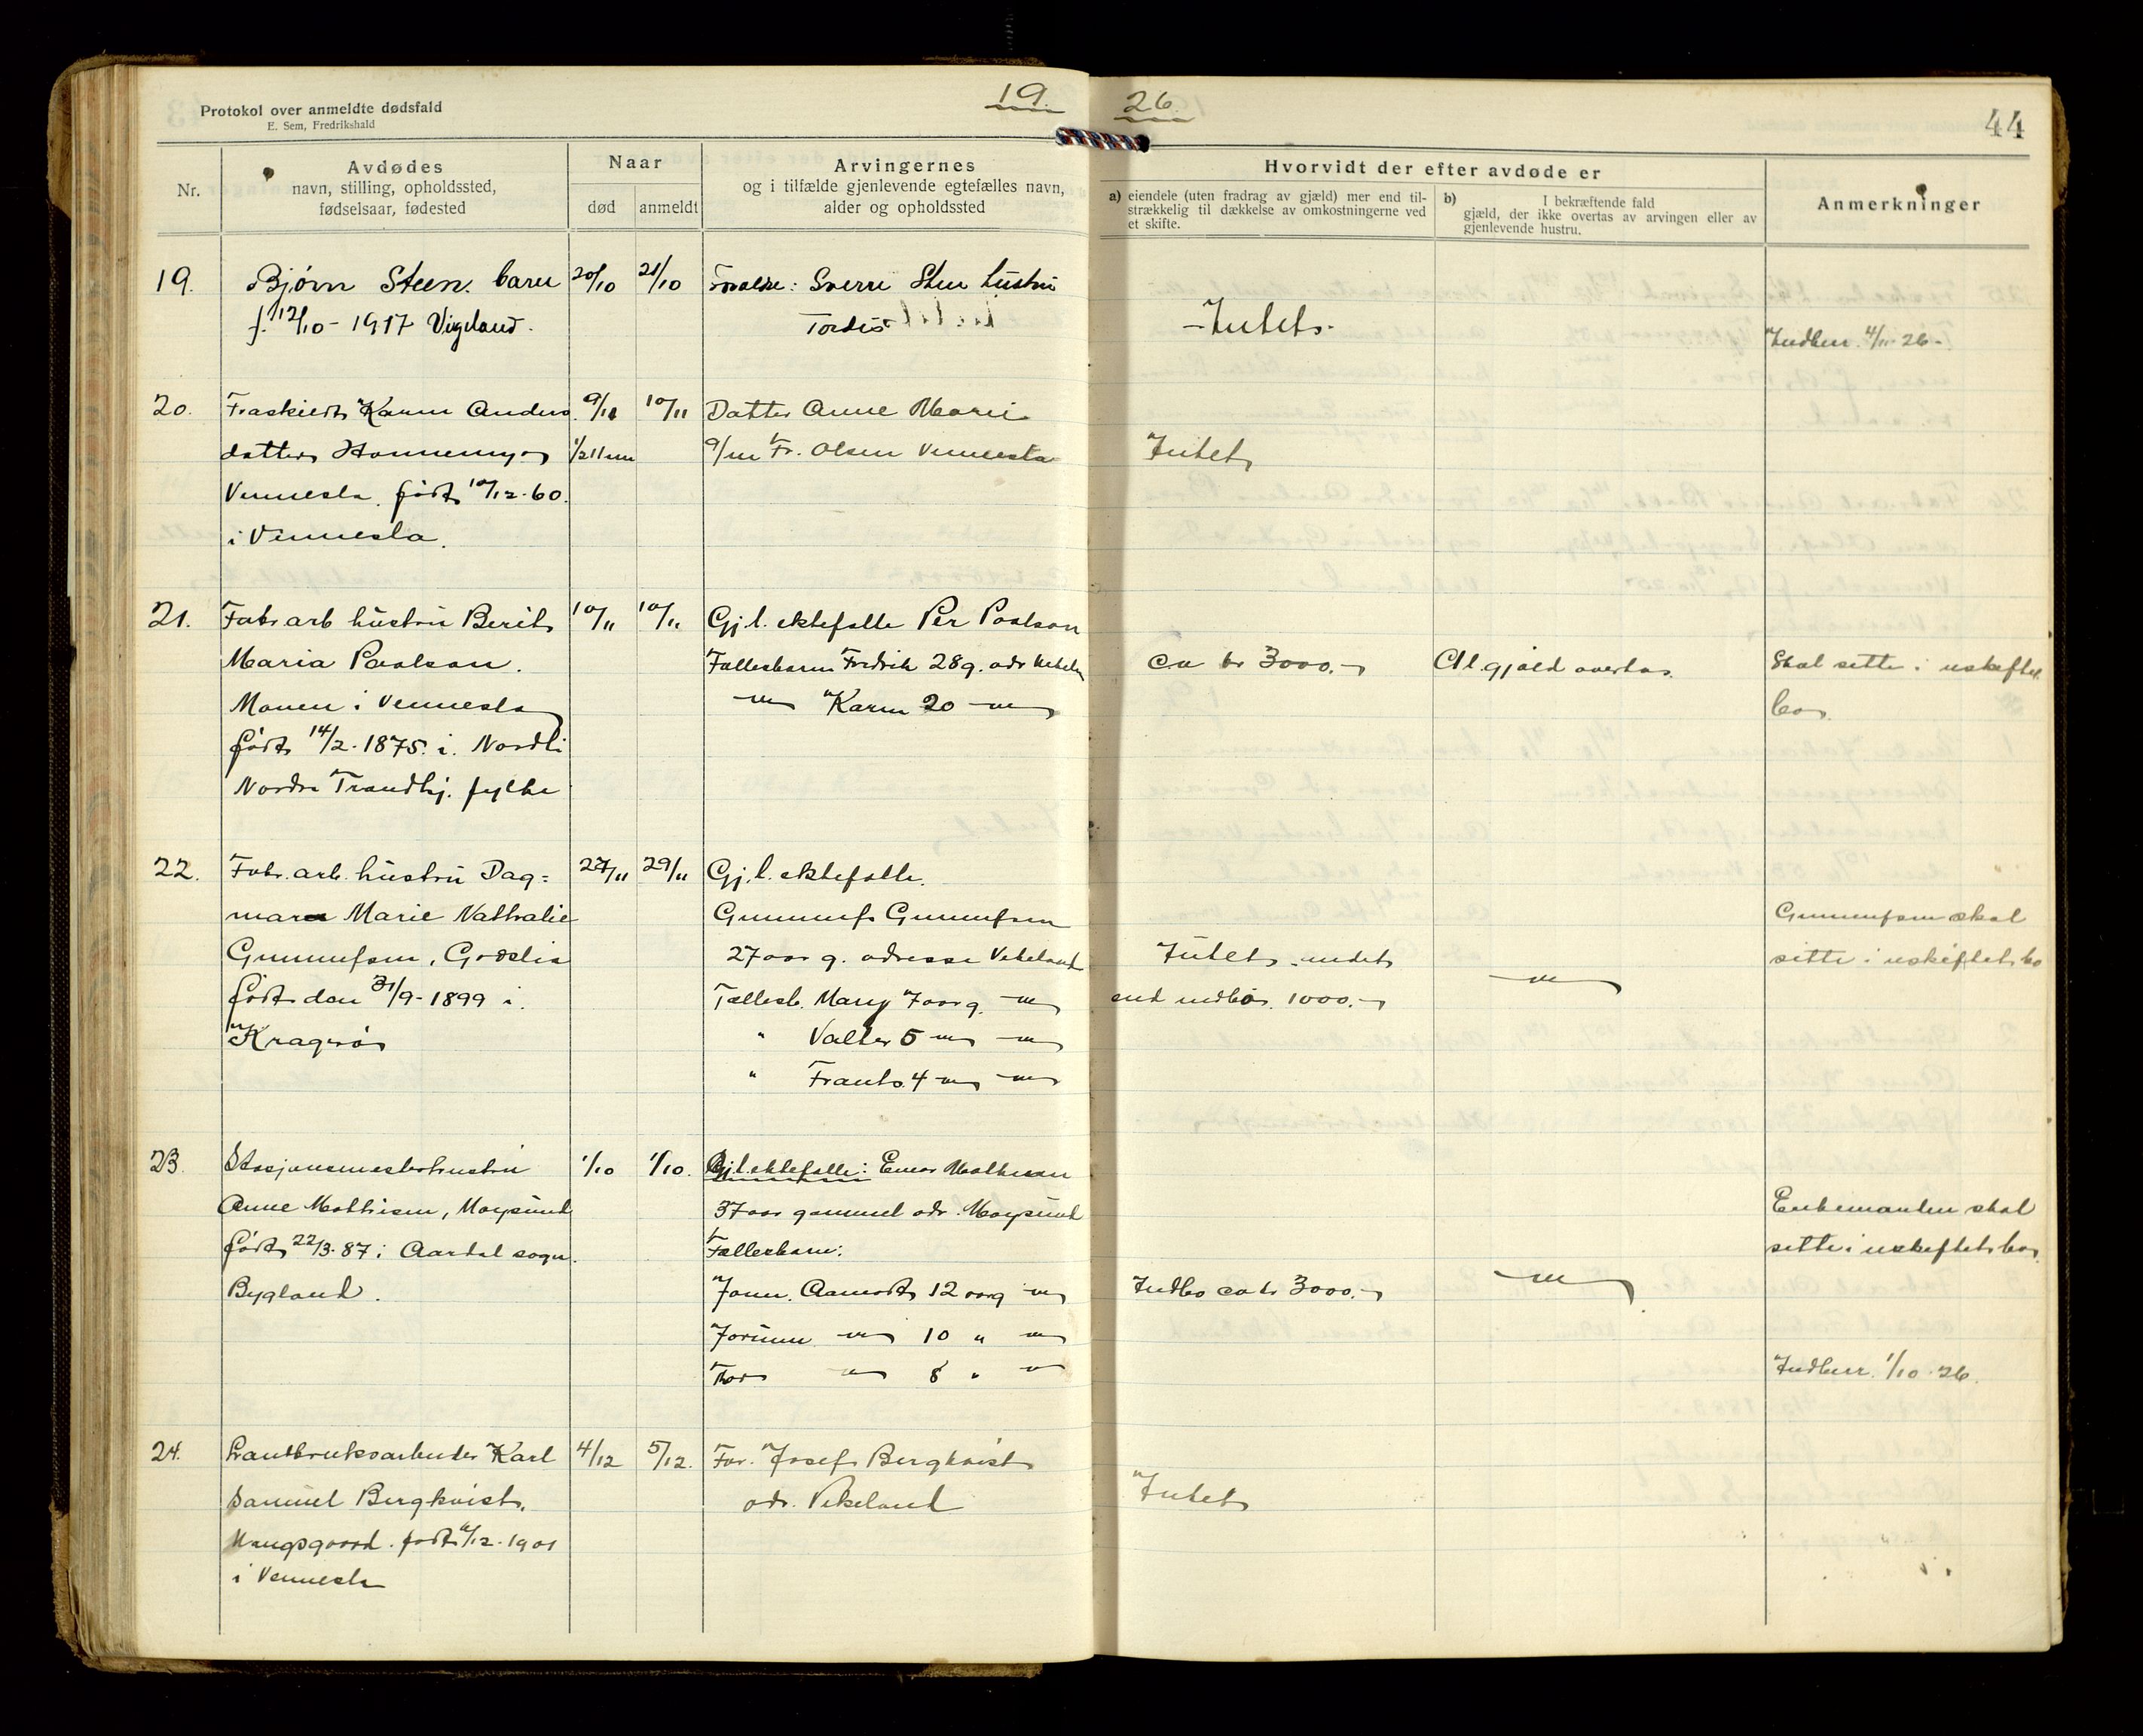 Protokol over anmeldte dødsfald
E. Sem, Fredrikshald
19.
26.
44
Nr.
Avdødes
navn, stilling, opholdssted,
fødselsaar, fødested
Naar
død
anmeldt
Arvingernes
og i tilfælde gjenlevende egtefælles navn,
alder og opholdssted
Hvorvidt der efter avdøde er
a) eiendele (uten fradrag av gjæld) mer end til-
strækkelig til dækkelse av omkostningerne ved
et skifte.
b) I bekræftende fald
gjæld, der ikke overtas av arvingen eller av
gjenlevende hustru.
Anmerkninger
19.
Bjørn Steen. barn
f. 12/10 - 1917 Vigeland.
20/10
21/10
Foreldre: Sverre Steen hustru
Tordis
- Intet -
Indberr. 4/11-26-
20.
Fraskiedt Karen Anders
datter Hommemyr
Vennesla. født 10/12-60.
i Vennesla.
9/11
10/11
Datter Anne Marie
g/m Fr. Olsen Vennesla
Intet
21.
Fabr. arb hustru Berit
Maria Paalson.
Moen i Vennesla
født 14/2-1875. i. Nordli
Nordre Trondhj. fylke
10/11
10/11
Gj. l. ektefælle Per Paalson
Fællesbarn Fredrik 28 g. adr
-"- Karen 20 -"-
ca kr 3000.-
Al gjæld overtas.
Skal sitte i uskiftet
bo.
22.
Fabr. arb. hustru Dag=
mar Marie Nathalie
Gunnufsen,
født den /9-1899 i.
Kragerø
27/11
29/11
Gj. l. ektefælle.
Gunnuf Gunnufsen
27 aar g. adresse Vikeland
Fællesb. Mary 7 aar g. -"-
" Valter 5 -"- -"-
" Frants 4 -"- -"-
Intet undt
end indbo. 1000.-
-"-
Gunnufsen skal
sitte i uskiftet bo
23.
Stasjonsmesterhustru
Anne Mathisen, Mosysund
født 22/3-87 i Aardal sogn.
Bygland.
1/10
1/10.
Gj. l. ektefælle: Einar Mathisen
37 aar gammel adr.
Fællesbarn:
Aamodt 12 aar g -"-
Jorunn -"- 10 " -"-
Thor -"- 8 " -"-
Indbo ca kr 3000.-
-"-
Enkemanden skal
sitte i uskiftet bo.
Indberr. 1/10-26.
24.
Landbruksarbeider Karl
Samuel Bergkvist.
født /12-1901
i Vennesla
4/12
5/12.
Far. Josef Bergkvist
adr. Vikeland
Intet